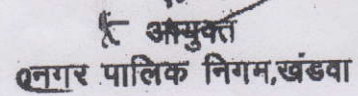 आयुक्त
नगर पालिक निगम,खंडवा